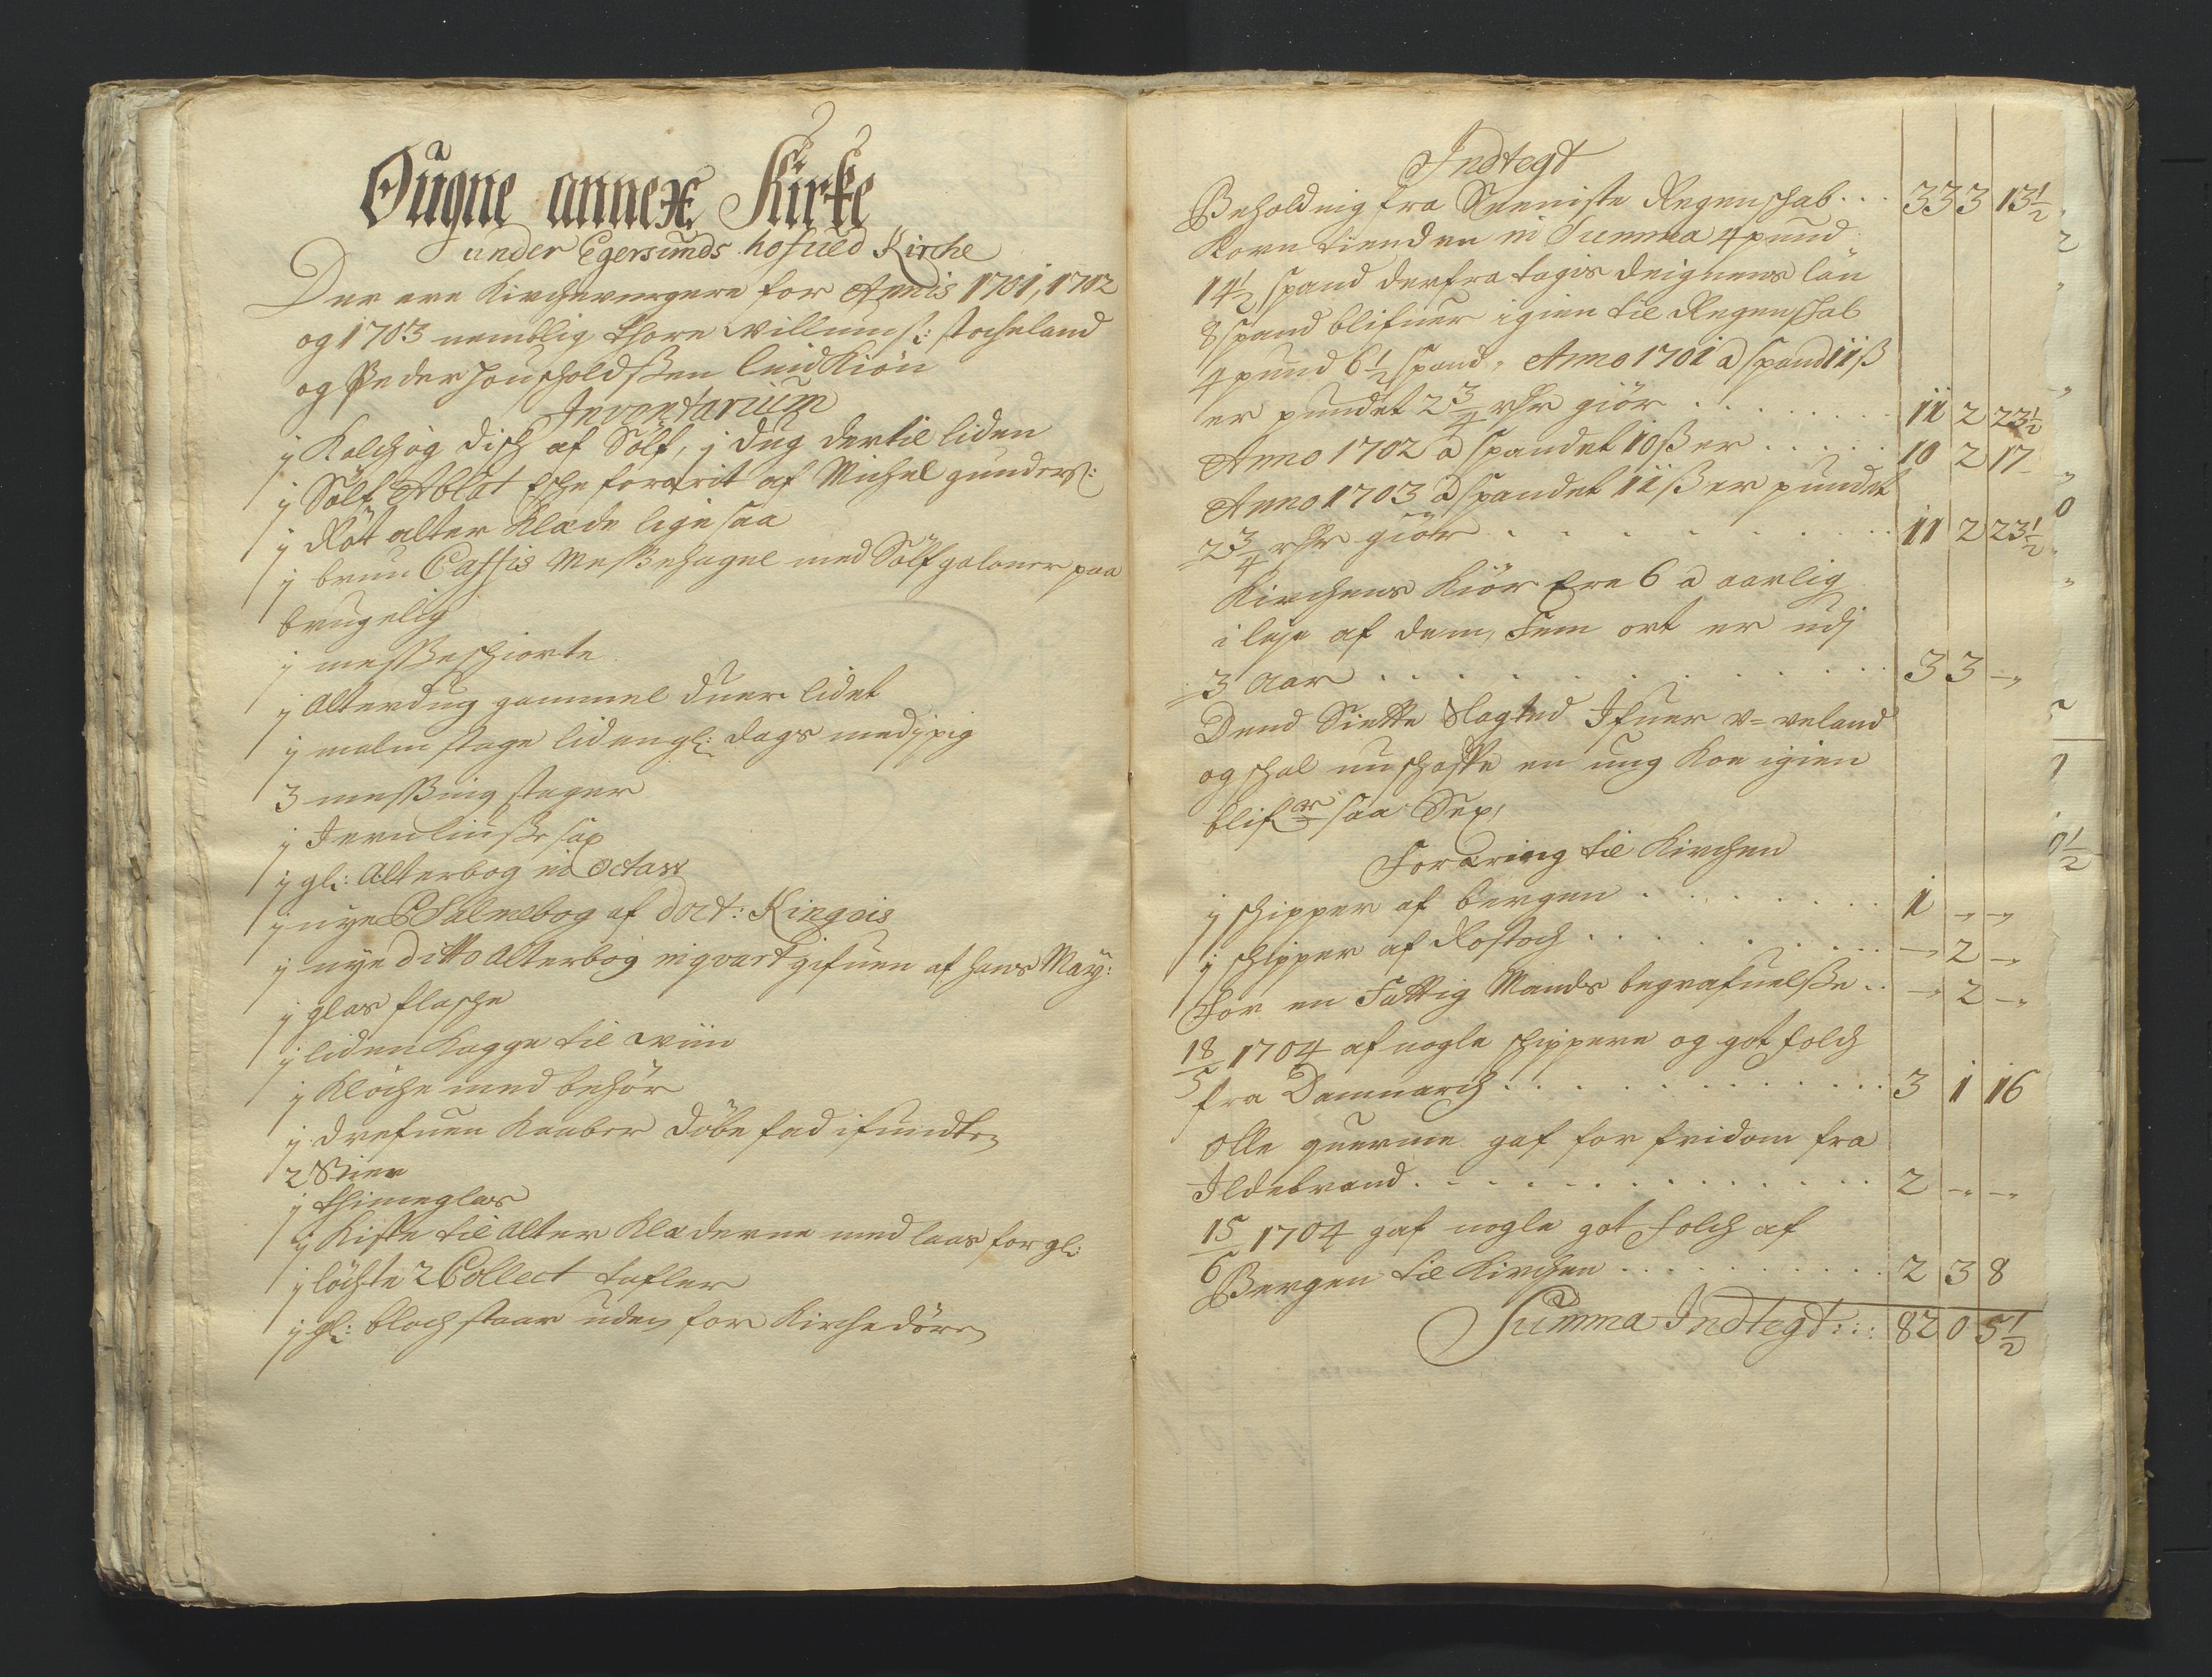 Øugne annex Kirke
under Egersunds hofued Kirche
Der ere Kirchevergere for Annis 1701, 1702
og 1703 nemblig Thore Villumss: stocheland
og Peder Joufholdssen leidkiön
Inventarium
j Kalch og disch af Sölf, j dug dertil liden
j Sölf Ablat Esche forærit af Michel gunderss:
j Röt alter Klæde lige saa
j brun Caffis Messehagel med Sölfgaloner paa
brugelig
j messeschiorte
j alterdug gammel duer lidet
j malm stage liden gl: dags med j pig
3 messing stager
j Jern liusse sax
j gl: alterbog in octav
j nye Psalmebog af Doct: Kingois
j nye ditto alterbog in qvart gifuen af hans May:
j glas flasche
j liden Kagge til wiin
j Kloche med behör
j drefuen Kaaber döbe fad i funten
2
j thimeglas
j Kiste til alter Klæderne med laas for gl:
j löchte 2 Collect tafler
j gl: bloch staar uden for Kirchedören
Indtegt
Beholdnig fra Seeniste Regenschab . . . 33 3 13½
Korn tienden in Summa 4 pund
14½ spand derfra tagis deignens lön
8 spand blifuer igien til Regenschab
4 pund 6½ spand, Anno 1701 a spand 11 ß
er pundet 2¾ rdr giör . . . . . 11 2 23½
Anno 1702 a spandet 10 ß er . . . . . 10 2 17
Anno 1703 a spandet 11 ß er pundet
2¾ rdr giör . . . . . 11 2 23½
Kirchens Kiör Ere 6 a aarlig
i leje af dem, Fem ort er udj
3 aar . . . . . 3 3 -
Dend Siette Slagted Ifuer v= veland
og schal nu schaffe en ung Koe igien
blifr saa Sex,
Foræring til Kirchen
j schipper af bergen . . . . . 1 - -
j schipper af Rostoch . . . . . - 2 -
For en Fattig Mands begrafuelsse . . - 2 -
18/5 1704 af nogle schippere og got folch
fra Danmarch . . . . . 3 1 16
Olle querme gaf for fridom fra
Ildebrand . . . . . 2 - -
15/6 1704 gaf nogle got folch af
Bergen til Kirchen . . . . . 2 3 8
Summa Indtegt : : : 82 0 5½